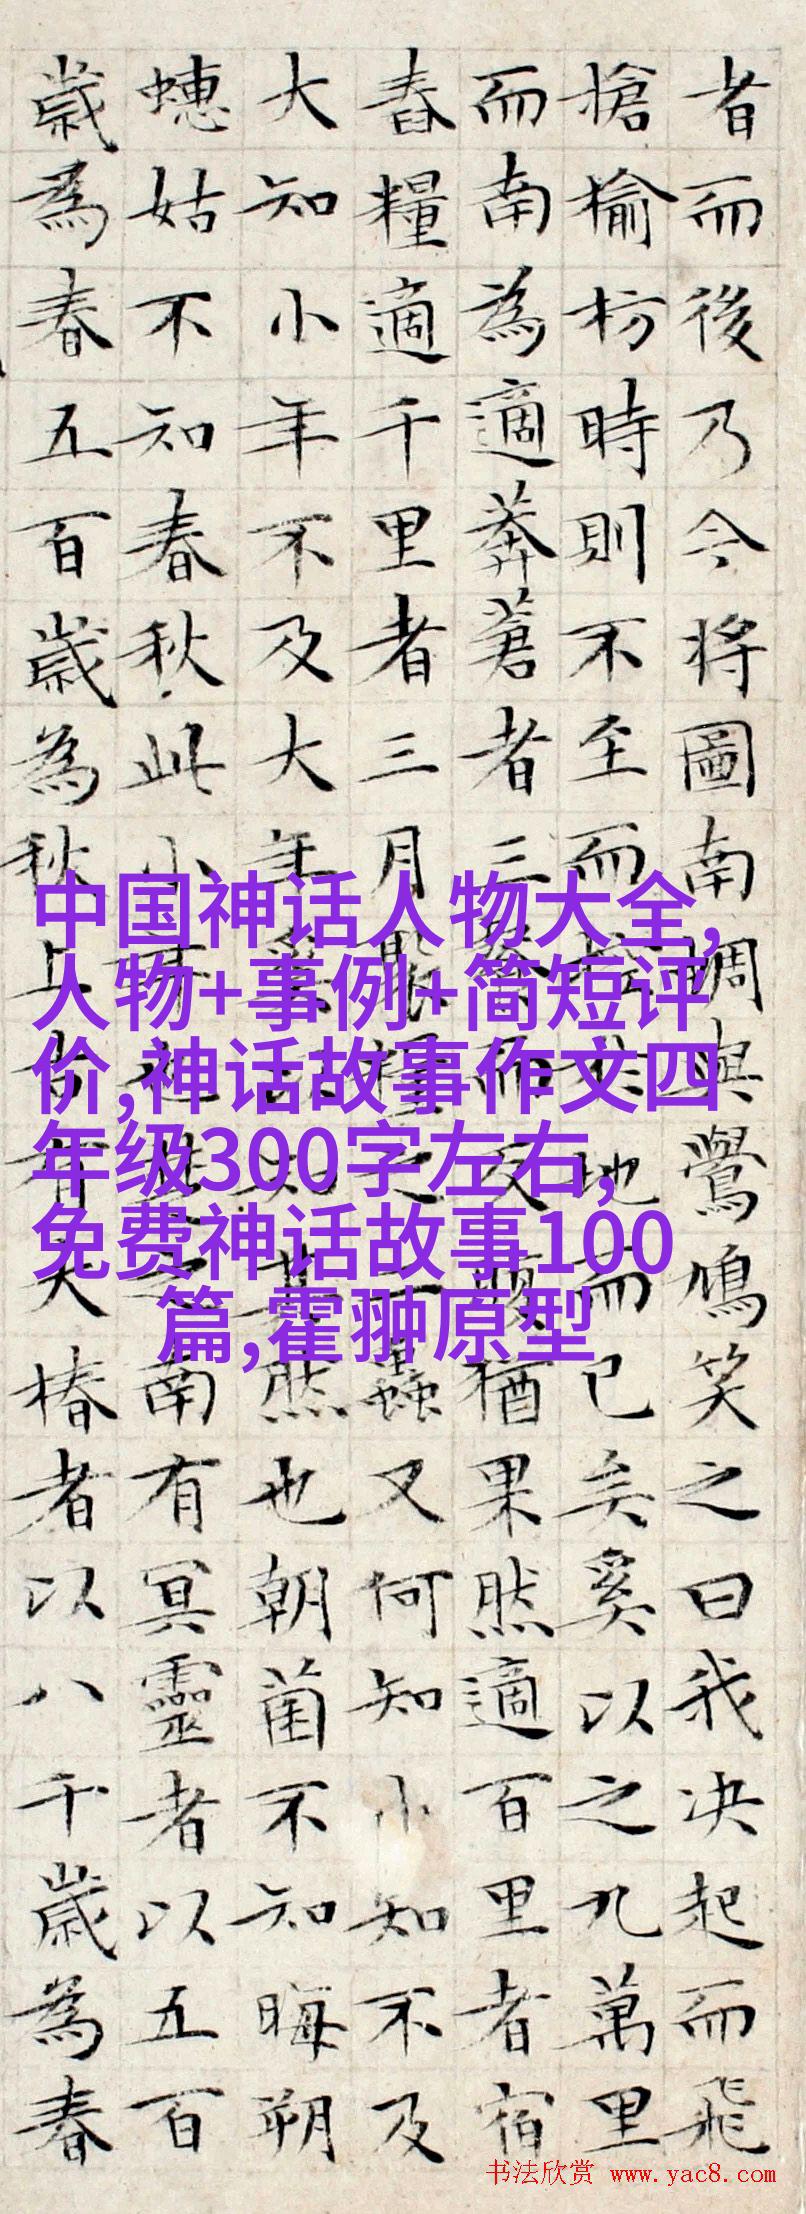 者而後乃今將圖南蜩與鷽鳩笑之曰我决起而飛
搶榆枋時則不至而控於地而已矣奚以之九萬里
而南為適莽蒼者三而反腹猶果然適百里者宿
舂糧適千里者三月聚糧之二蟲又何知小知不及
大知小年不及大年奚以知其然也朝菌不知晦朔
蟪姑不知春秋此小年也楚之南有冥靈者以五百
歲為春五百歲為秋上古有大椿者以八千歲為春
中国神话人物大全,
人物+事例+简短评
价,神话故事作文四
年级300字左右,
免费神话故事100
篇,霍翀原型
书法欣赏 www.yac8.com